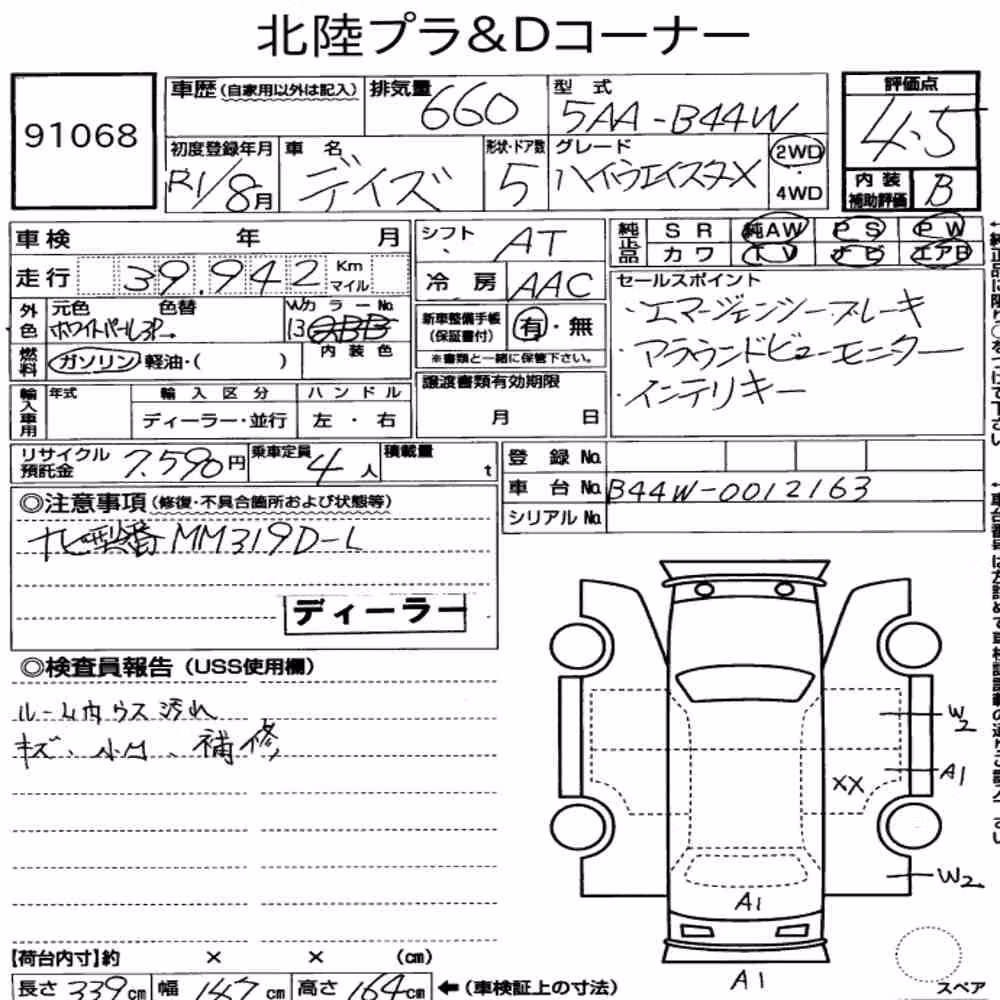 北陸プラ&Dコーナー
91068
車歴(自家用以外は記入)
排気量 660
型式 5AA-B44W
評価点 4.5
初度登録年月 R1/8月
車名 デイズ
形状・ドア数 5
グレード ハイウェイスターX
2WD
4WD
内装補助評価 B
車検 年 月
シフト AT
純正品 SR 純AW PS PW
カワ TV ナビ エアB
走行 39,942 Km マイル
冷房 AAC
セールスポイント
・エマージェンシーブレーキ
・アラウンドビューモニター
・インテリキー
外色 元色 色替 カラーNo.
ホワイトパール3P
新車整備手帳(保証書付) 有・無
※書類と一緒に保管下さい。
燃料 ガソリン 軽油・( )
内装色
輸入車用 年式 輸入区分 ハンドル
ディーラー・並行 左・右
譲渡書類有効期限
月 日
リサイクル預託金 7.590円
乗車定員 4人
積載量 t
登録No.
車台No. B44W-0012163
シリアルNo.
◎注意事項(修復・不具合箇所および状態等)
ナビ型番 MM319D-L
ディーラー
◎検査員報告(USS使用欄)
ルーム内ウス汚れ
キズ、小凹、補修
W2
A1
XX
W2
A1
A1
【荷台内寸】約 × × (cm)
長さ 339cm 幅 147cm 高さ 164cm ←(車検証上の寸法)
スペア